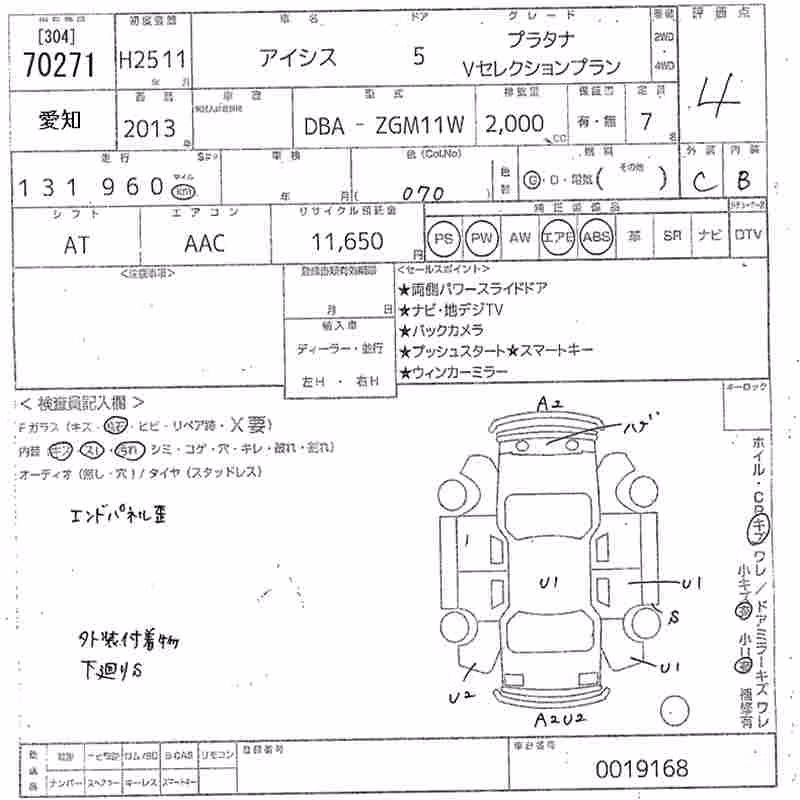 初度登録 車名 ドア グレード 装備 評価点
[304] 70271 H25 11 年 月 アイシス 5 プラタナ Vセレクションプラン 2WD・4WD 4
愛知 西暦 2013 年 車歴 型式 DBA - ZGM11W 排気量 2,000 CC 保証書 有・無 定員 7 名
走行 131960 マイル km 車検 年 月 色(Col.No) ( 070 ) 色替 燃料 G・D・電気( その他 ) 外装 C 内装 B
シフト エアコン リサイクル預託金 純正装備品
AT AAC 11,650 円 PS PW AW エアB ABS 革 SR ナビ DTV
<注意事項> 登録書類有効期限 <セールスポイント>
★両側パワースライドドア
月 日 ★ナビ・地デジTV
輸入車 ★バックカメラ
ディーラー・並行 ★プッシュスタート★スマートキー
左H・右H ★ウィンカーミラー
キーロック
＜検査員記入欄＞ A2
Fガラス (キズ・飛石・ヒビ・リペア跡・X要) ハゲ
内装 (キズ・スレ・汚れ・シミ・コゲ・穴・キレ・破れ・割れ)
オーディオ (無し・穴) / タイヤ (スタッドレス)
エンドパネル歪
U1 U1
S
外装付着物
下廻りS
U2 U1
A2U2
ホイル・CPキズ ワレ / ドアミラーキズ ワレ
小キズ 小凹 補修有
ナンバー スペアキー キーレス スマートキー B-CAS リモコン
登録番号 車台番号
0019168